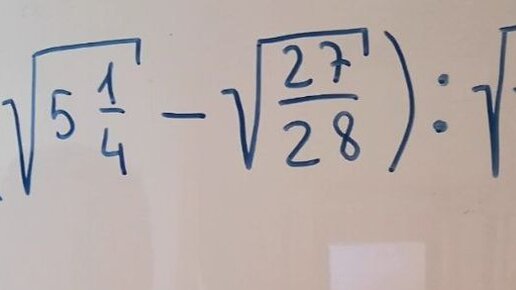 √5 1/4 − √27/28) : √